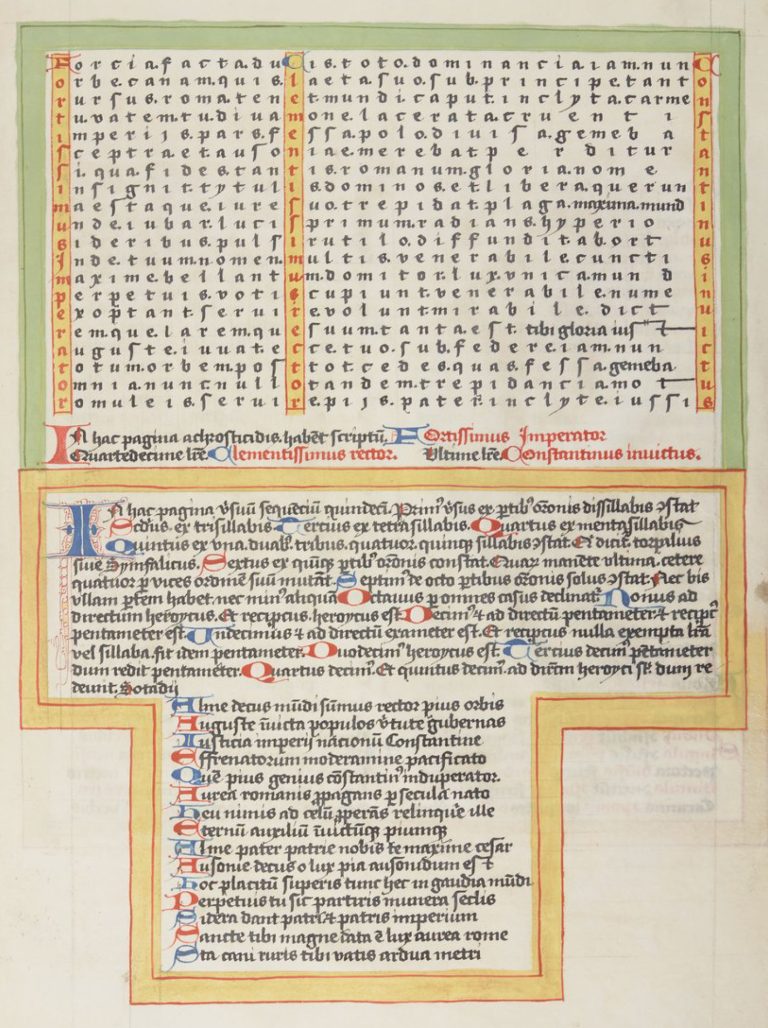 Forcia.facta.duCis.toto.dominancia.iam.nunC
orbe.canam.quis.laeta.suo.sub.principe.tanto
rursus.roma.tenet.mundi.caput.inclyta.carmen
tu.vatem.tu.diva mone.lacerata.cruentis
imperiis.pars.fessa.polo.divisa.gemebat
sceptraetausoniae.merebatperditura
si.qua.fidestantis.romanum.gloria.nomen
insignit.tytulis.dominos.et.libera.querunt
maestaque.iuressuo.trepidat.plaga.maxima.mundi
unde.iubar.lucisprimum.radians.hyperion
sideribus.pulsirutilo.diffundit.ab.ortu
Inde.tuum.nomen.multis.venerabile.cunctis
maxime.bellantum.domitor.lux.vnica.mundi
perpetuis.votiscupiunt.venerabile.numen
exoptant.servirevoluntmirabile.dictu
rem.que.larem.quesuum.tanta.est.tibi gloria uisti
auguste.iuvat.ecce.tuo.sub.federe.iam.nunc
totum.orbem.posttot.cedes.quas.fessa.gemebat
omnia.nunc.nullotandem.trepidancia.motu
romuleis.servire.piis.pater.inclyte.iussis
In hac pagina achrosticidis.habēt scriptū. Fortissimus Imperator
Quartedecime lr̄e. Clementissimus rector. Ultime lr̄e Constantinus invictus.
IN hac pagina v̄suū sequēciū quindecī. Primꝰ v̄sus ex ꝑtibꝰ or̄onis dissillabis ꝯstat
Scd̄us. ex trisillabis. Tercius ex tetrasillabis. Quartus ex mentasillabis
Quintus ex vna. duabꝰ. tribus. quatuor. quinqꝫ sillabis ꝯstat. Et dicit̄ torpalius
siue Symfalicus. Sextus ex quīqꝫ ꝑtibꝰ or̄onis constat. Quaꝝ manēte vltima. cetere
quatuor ꝑ vices ordinē suū mutāt. Septimꝰ de octo ꝑtibus or̄onis solus ꝯstat. Nec bis
vllam ꝑtem habet. nec minꝰ aliquā Octauus ꝑ omnes casus declinat̄. Nonus ad
directum heroycus. Et recipcus. heroycus est Decimꝰ & ad directū pentameter. & recipcꝰ
pentameter est. Undecimus & ad directū exameter est. Et recipcus nulla exempta lr̄a
vel sillaba. fit idem pentameter. Duodecimꝰ heroycus est. Tercius decimꝰ pētameter
dum redit pentameter. Quartus decimꝰ. Et quintus decimꝰ. ad dir̄cm heroyci sꝫ dum re
deunt. Sotadii
Alme decus mūdi sūmus rector pius orbis
Auguste īnvicta populos v̄tute gubernas
Iusticia imperii nacionū Constantine
Effrenatorum moderamine pacificato
Quē pius genius cōstantinꝰ induperator.
Aurea romanis ꝓpagans ꝑ secula nato
heu nimis ad celū ꝓperās relinquis ille
Eternū auxiliū īnvictūqꝫ piumqꝫ
Alme pater patrie nobis te maxime cesar
Ausonie decus o lux pia ausonidum es t
hoc placitū superis tunc hec in gaudia mūdi
Perpetuis tu sic partiris munera seclis
Sidera dant patri & patris imperium
Sancte tibi magne data ē lux aurea rome
Sta cani ruris tibi vatis ardua metri